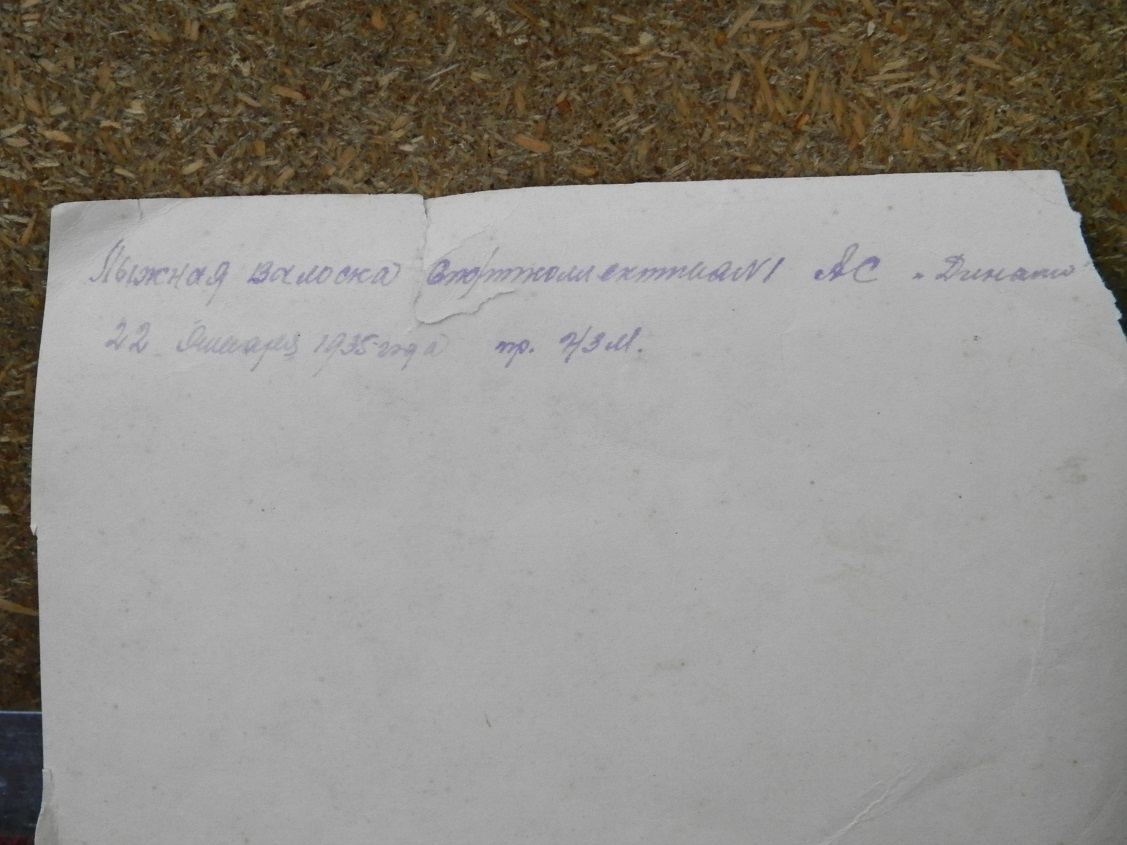 Лыжная вылоска Спортколлектива N1 АС „Динамо
22 Января 1935 года пр. ЧЗМ.